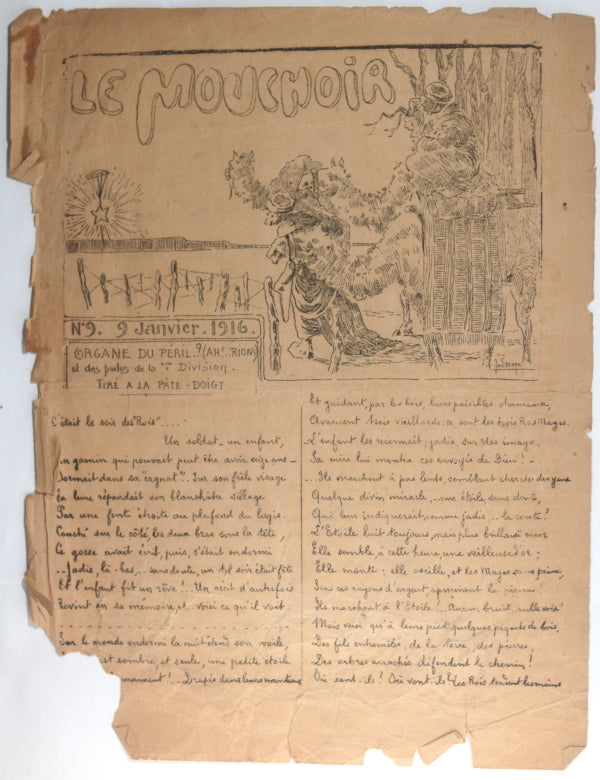 LE MOUCHOIR
N°9. 9 Janvier. 1916.
ORGANE DU PERIL.9 (AH!. RION)
et des poilus de la Division.
TIRÉ A LA PÂTE-DOIGT.
C'était le soir des "Rois"....
Un soldat _ un enfant,
gamin qui pouvait peut être avoir onze ans _
Dormait dans sa "cagnat". Sur son frêle visage
La lune répandait son blanchâtre sillage
Par une fente étroite au plafond du logis.
Couché sur le côté, les deux bras sous la tête,
Ce gosse avait écrit, puis, s'était endormi
..Jadis, là-bas,... sans doute, un tel soir était fête
Et l'enfant fit un rêve!.. Un récit d'autrefois
Revint en sa mémoire, et voici ce qu'il voit:
Sur le monde endormi la nuit étend son voile,
et sombre, et seule, une petite étoile
mament!.. Drapés dans leurs manteaux
Et guidant, par les bois, leurs paisibles chameaux,
Avancent trois vieillards: ce sont les trois Rois Mages.
L'enfant les reconnait: jadis, sur des images,
Sa mère lui montra ces envoyés de Dieu! _
...Ils marchent à pas lents, semblant chercher des yeux
Quelque divin miracle,... une étoile sans doute,
Qui leur indiquerait, comme jadis... la route!
L'Etoile luit toujours, mais plus brillante encor
Elle semble, à cette heure, une veilleuse d'or;
Elle monte: elle oscille, et les Mages sans peine,
Sous ces rayons d'argent, aperçoivent la plaine!
Ils marchent à l'Etoile!.. Aucun bruit, nulle voix!
Mais voici qu'à leurs pieds quelques piquets de bois,
Des fils entremêlés, de la terre, des pierres,
Des arbres arrachés défendent le chemin!
Où sont-ils? Où vont-ils? Les Rois tendent les mains